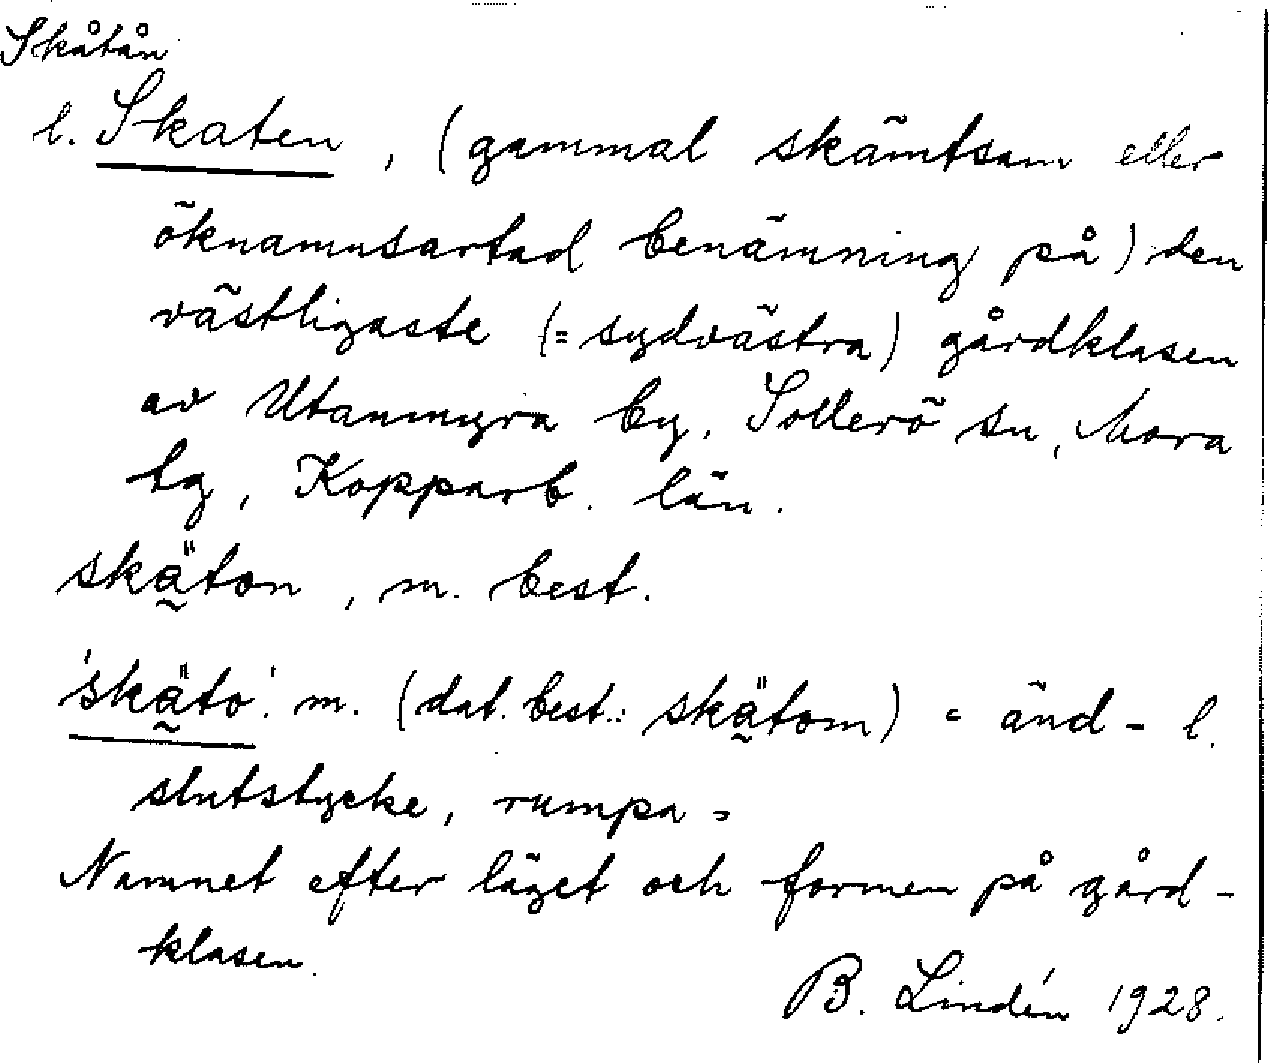 Skåtån
l. Skaten, (gammal skämtsam eller
öknamnsartad benämning på) den
västligaste (= sydvästra) gårdklasen
av Utanmyra by, Sollerö sn, Mora
tg, Kopparb. län.
skä̰ton, m. best.
'skä̰to'. m. (dat. best.: skä̰tom) = änd- l.
slutstycke, rumpa =
Namnet efter läget och formen på gård-
klasen.
B. Lindén 1928.